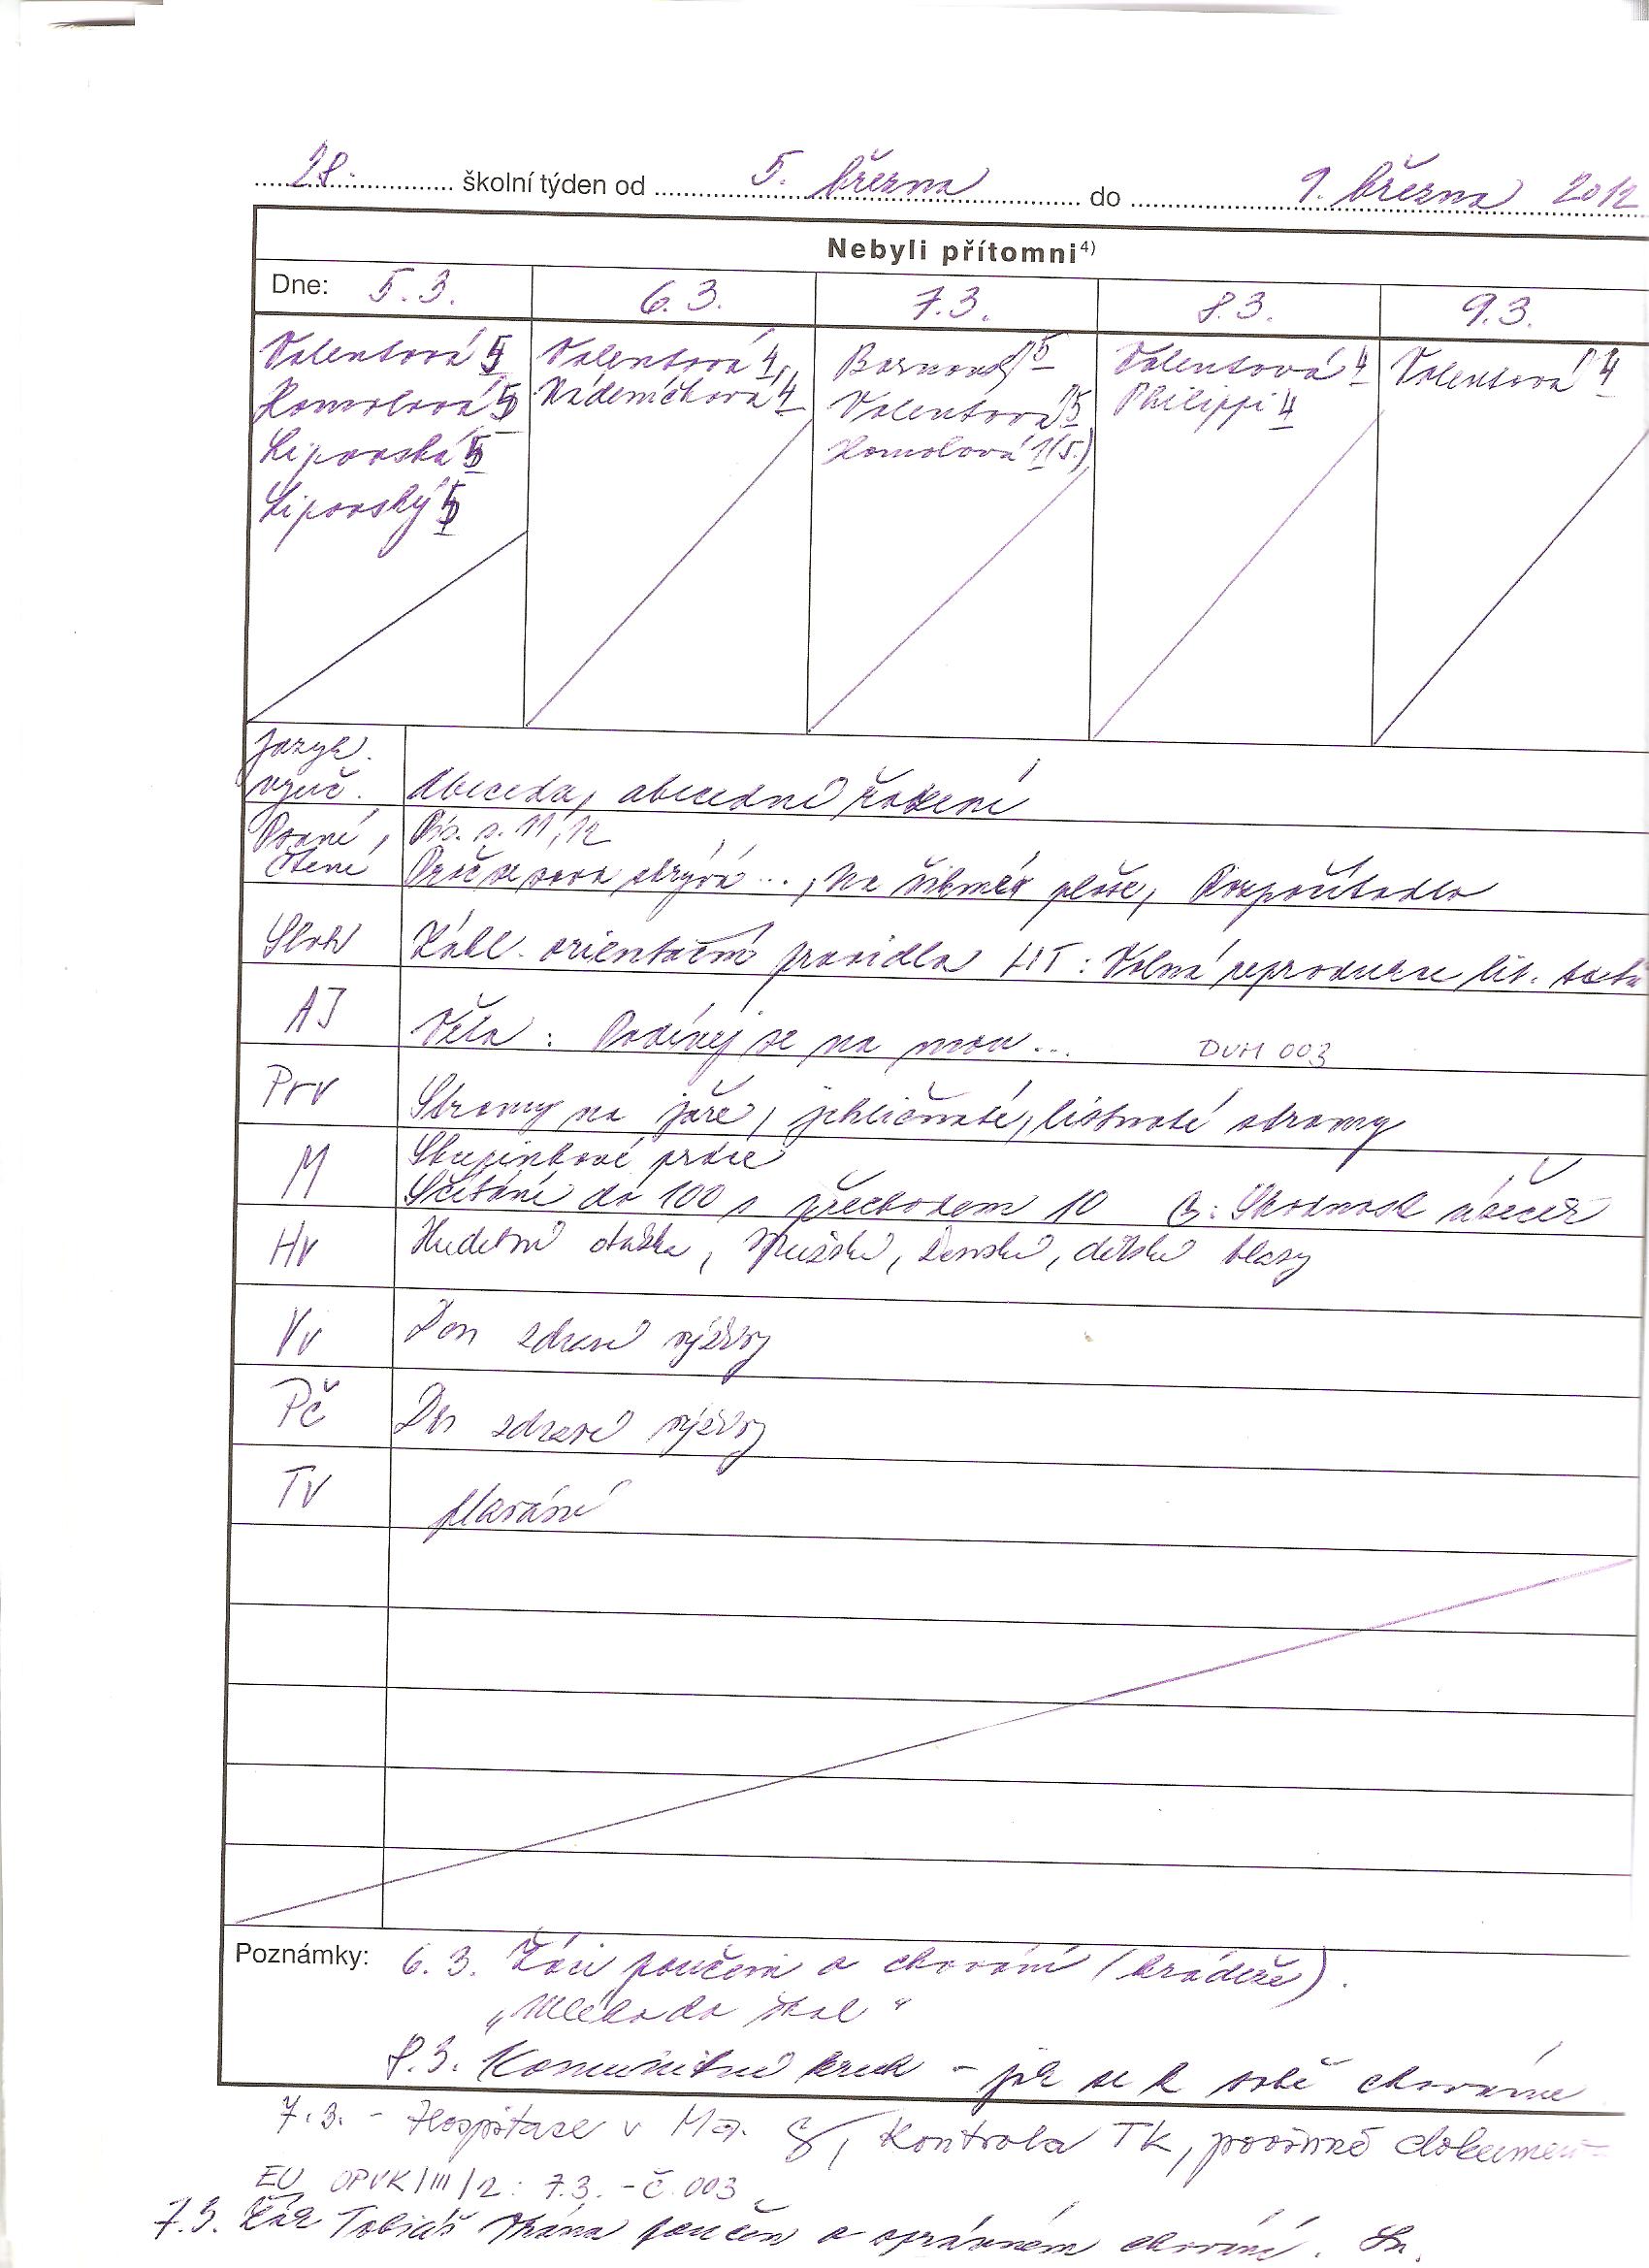 28. školní týden od 5. března do 9. března 2012
Nebyli přítomni4)
Dne: 5.3. 6.3. 7.3. 8.3. 9.3.
Valentová 5 Valentová 4 5 Valentová 4 Valentová 4
Homolová 5 Nádeníčková 4 Valentová 5 Philippi 4
Lipovská 5 Homolová 1(5.)
Lipovský 5
Jazyk.
vyuč. Abeceda, abecední řazení
Psaní, Pís. s. 11, 12
čtení Proč se sova skrývá ..., Na školní ploše, Rozpočítadlo
Sloh Zákl. orientační pravidla LIT: Volná reprodukce lit. textu
AJ Věta: Podívej se na mou ... DUM 003
Prv Stromy na jaře, jehličnaté, listnaté stromy
M Skupinkové práce
Sčítání do 100 s přechodem 10 G: Shodnost úseček
Hv Hudební otázka, mužské, ženské, dětské hlasy
Vv Den zdravé výživy
Pč Den zdravé výživy
Tv plavání
Poznámky: 6.3. Žáci poučeni o chování (krádeže).
„Mléko do škol"
8.3. Komunitní kruh - jak se k sobě chováme
7.3. - Hospitace v Ma. Kontrola TK, povinné dokumen-
EU OPVK/III/2: 7.3. - č. 003
7.3. Žák Tobiáš Vrána poučen o správném chování.